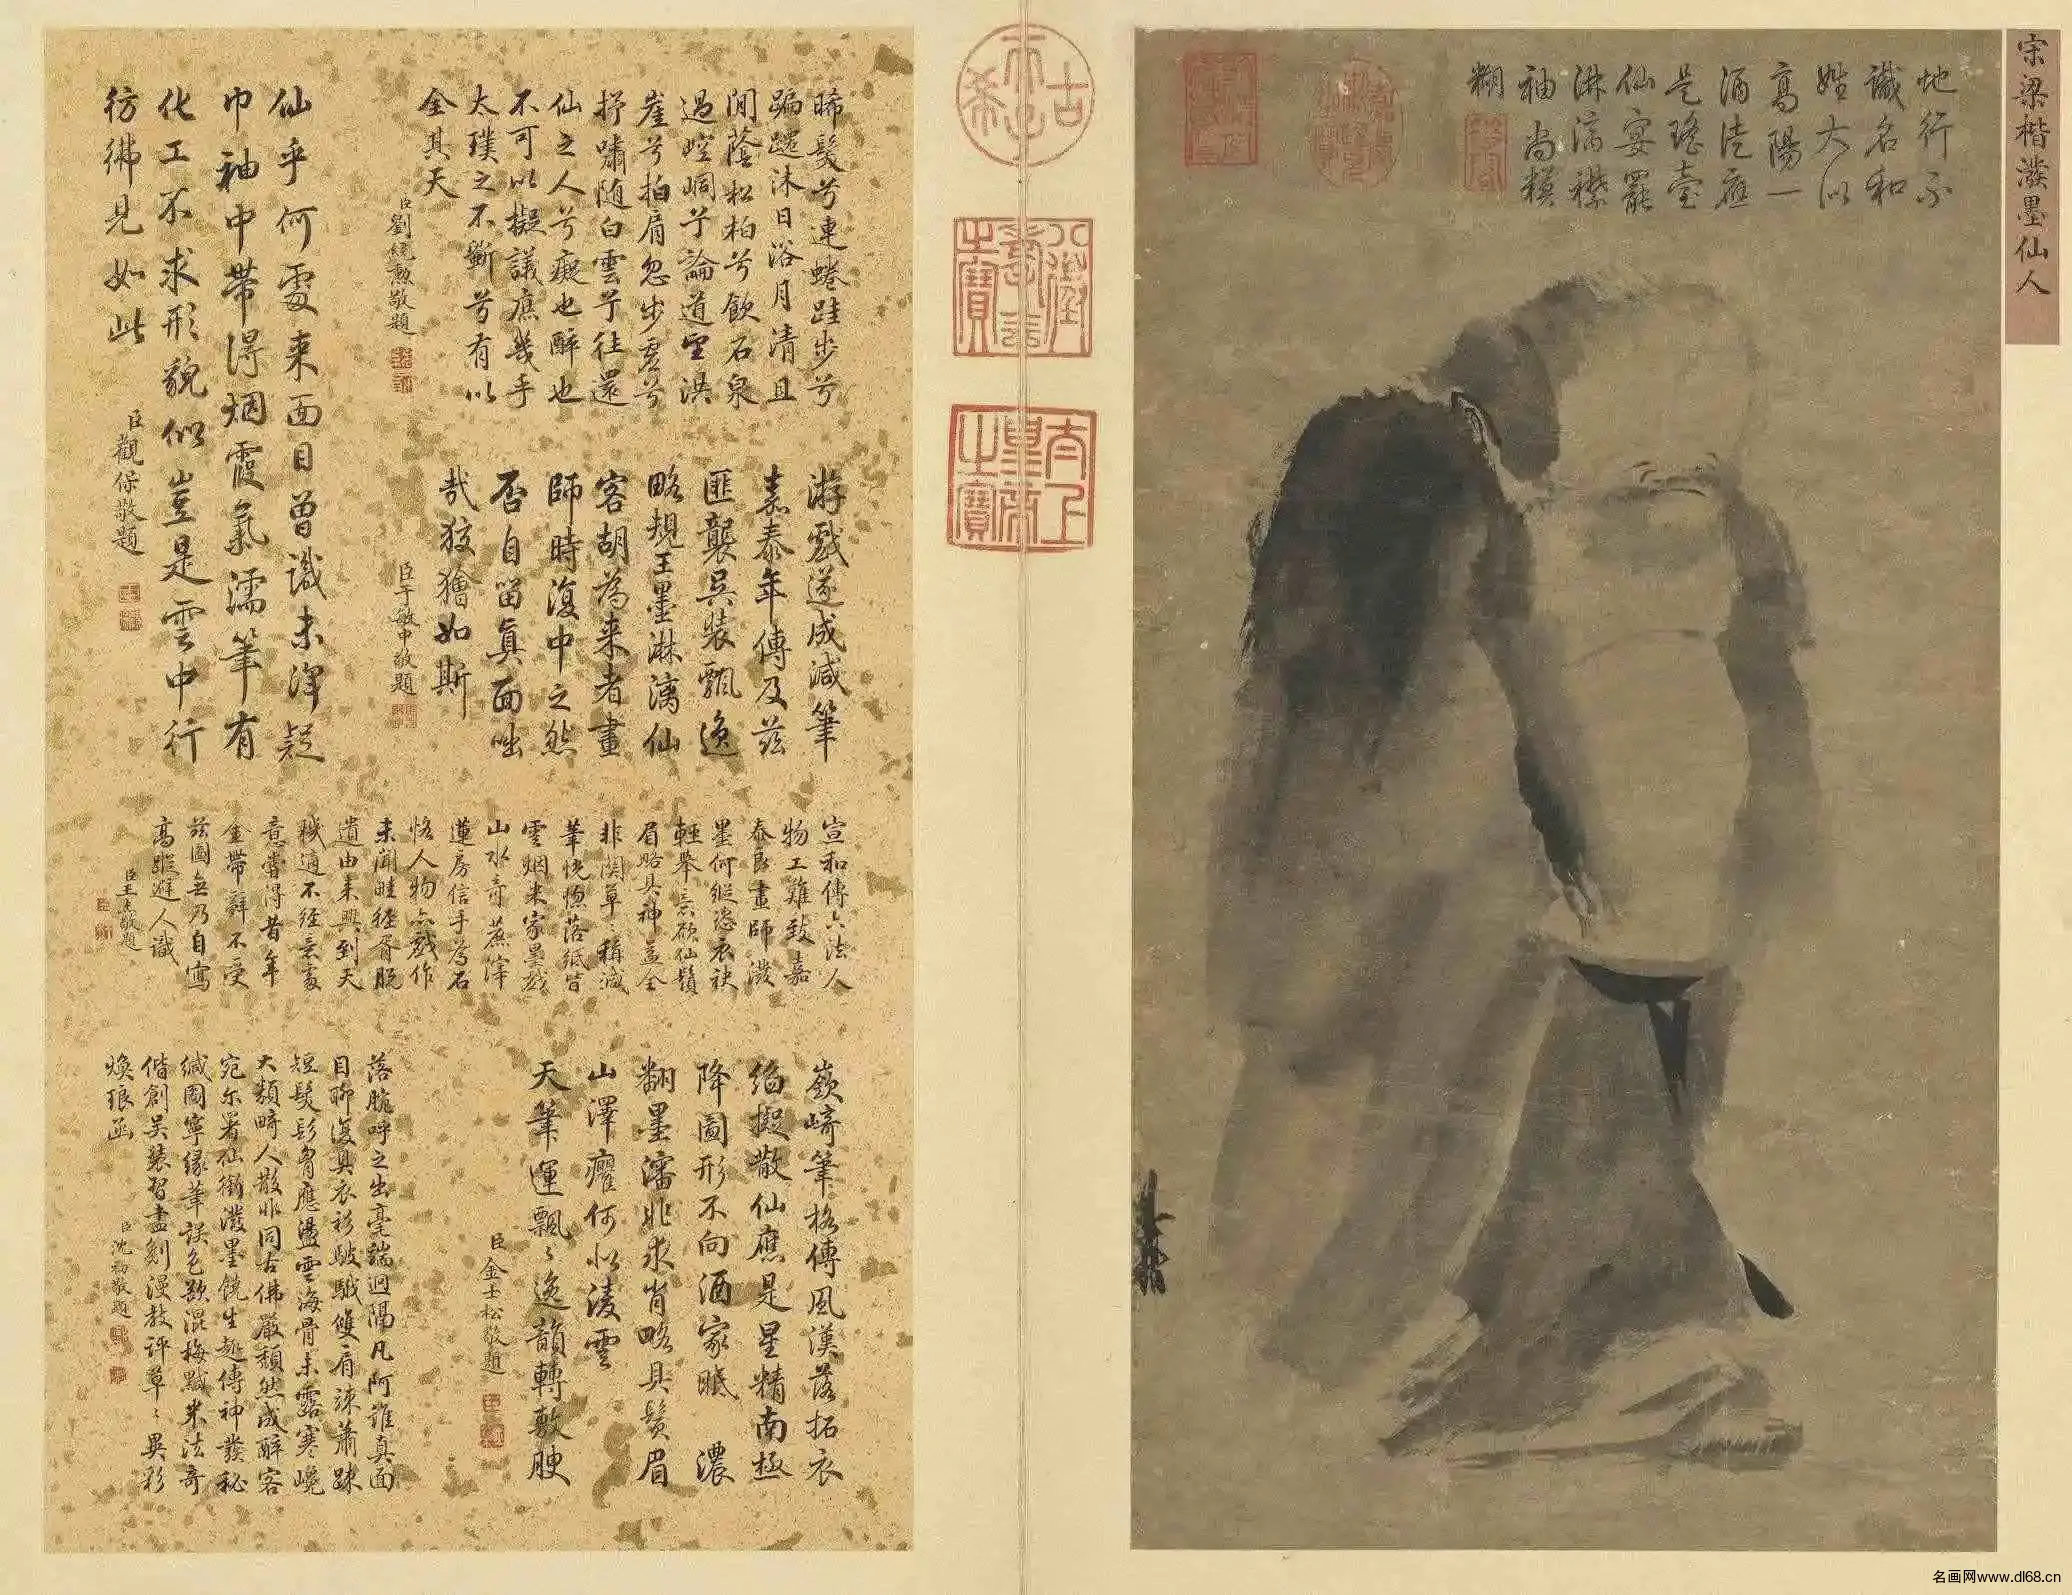 宋梁楷潑墨仙人
地行不
識名和
姓大似
高陽一
酒徒應
是瑤臺
仙宴罷
淋漓襟
袖尚模
糊
古希天子
八徵耄念之寶
太上皇帝之寶
晞髮兮連蜷跬步兮
蹁躚沐日浴月清且
閒蔭松柏兮飲石泉
過崆峒兮論道望洪
崖兮拍肩忽步虛兮
抒嘯隨白雲兮往還
仙之人兮癡也醉也
不可以擬議庶幾乎
太璞之不斲兮有以
全其天
臣劉統勲敬題
仙乎何處来面目曾識未渾疑
巾袖中帶得烟霞氣濡筆有
化工不求形貌似豈是雲中行
彷彿見如此
臣觀保敬題
游戲遂成減筆
嘉泰年傳及茲
匪襲吳裝飄逸
略規王墨淋漓仙
客胡為来者畫
師時復中之然
否自留真面咄
哉狡獪如斯
臣于敏中敬題
宣和傳六法人
物工難致嘉
泰良畫師潑
墨何縱恣衣袂
輕舉意欲仙鬚
眉略具神益全
非関草草稱減
筆恍惚落紙皆
雲烟米家墨戲
山水奇蔗滓
蓮房信手為石
恪人物亦戲作
未聞畦徑胥脫
遺由来興到天
機適不經意處
意嘗得昔年
金帶辭不受
茲圖無乃自寫
高蹤遊人識
嶔崎筆格傳風漢落拓衣
絢擬散仙應是星精南極
降圖形不向酒家眠 濃
翻墨瀋非求肖略具鬚眉
山澤癯何似淩雲
天筆運飄飄逸韻轉敷腴
臣金士松敬題
落脫呼之出毫端迥隔凡阿誰真面
目聊復具衣衫皺皵雙肩竦蕭踈
短髮鬖胷應盪雲海骨未露寒巉
大類畸人散非同古佛嚴頹然成醉客
宛尔署仙銜潑墨饒生趣傳神發秘
緘圖寧緣筆誤色欲混梅黬米法奇
偕創吳裝習盡刬漫教評草草異彩
煥琅函
臣沈初敬題
名画网www.dl68.cn